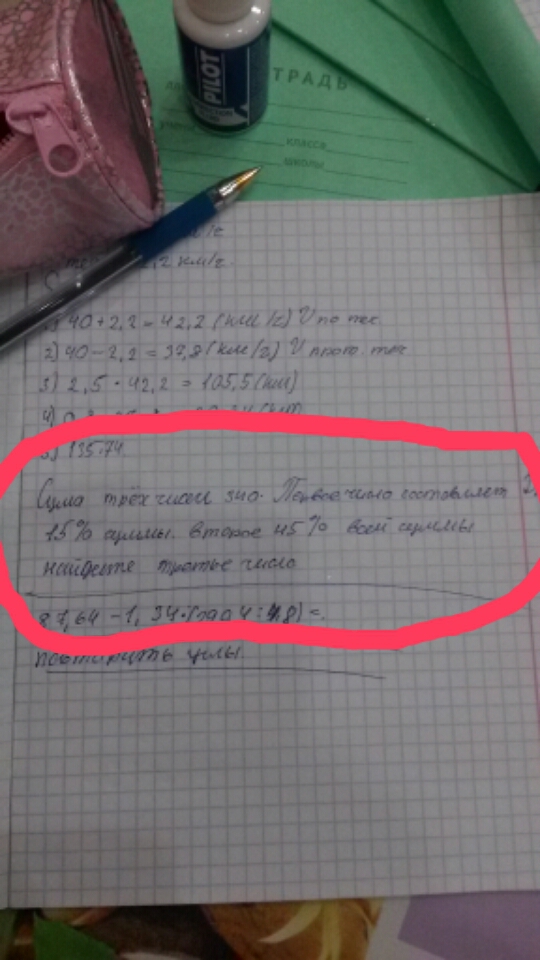 PILOT
ТРАДЬ
класса
школы
км/г.
1) 40 + 2,2 = 42,2 (км/г) V по теч.
2) 40 - 2,2 = 37,8 (км/г) V прот. теч
3) 2,5 · 42,2 = 105,5 (км)
4)
5) 135.74.
Сума трёх чисел 340. Первое число составляет
15% суммы. Второе 45% всей суммы
найдите третье число
87,64 - 1,34.
повторить углы.